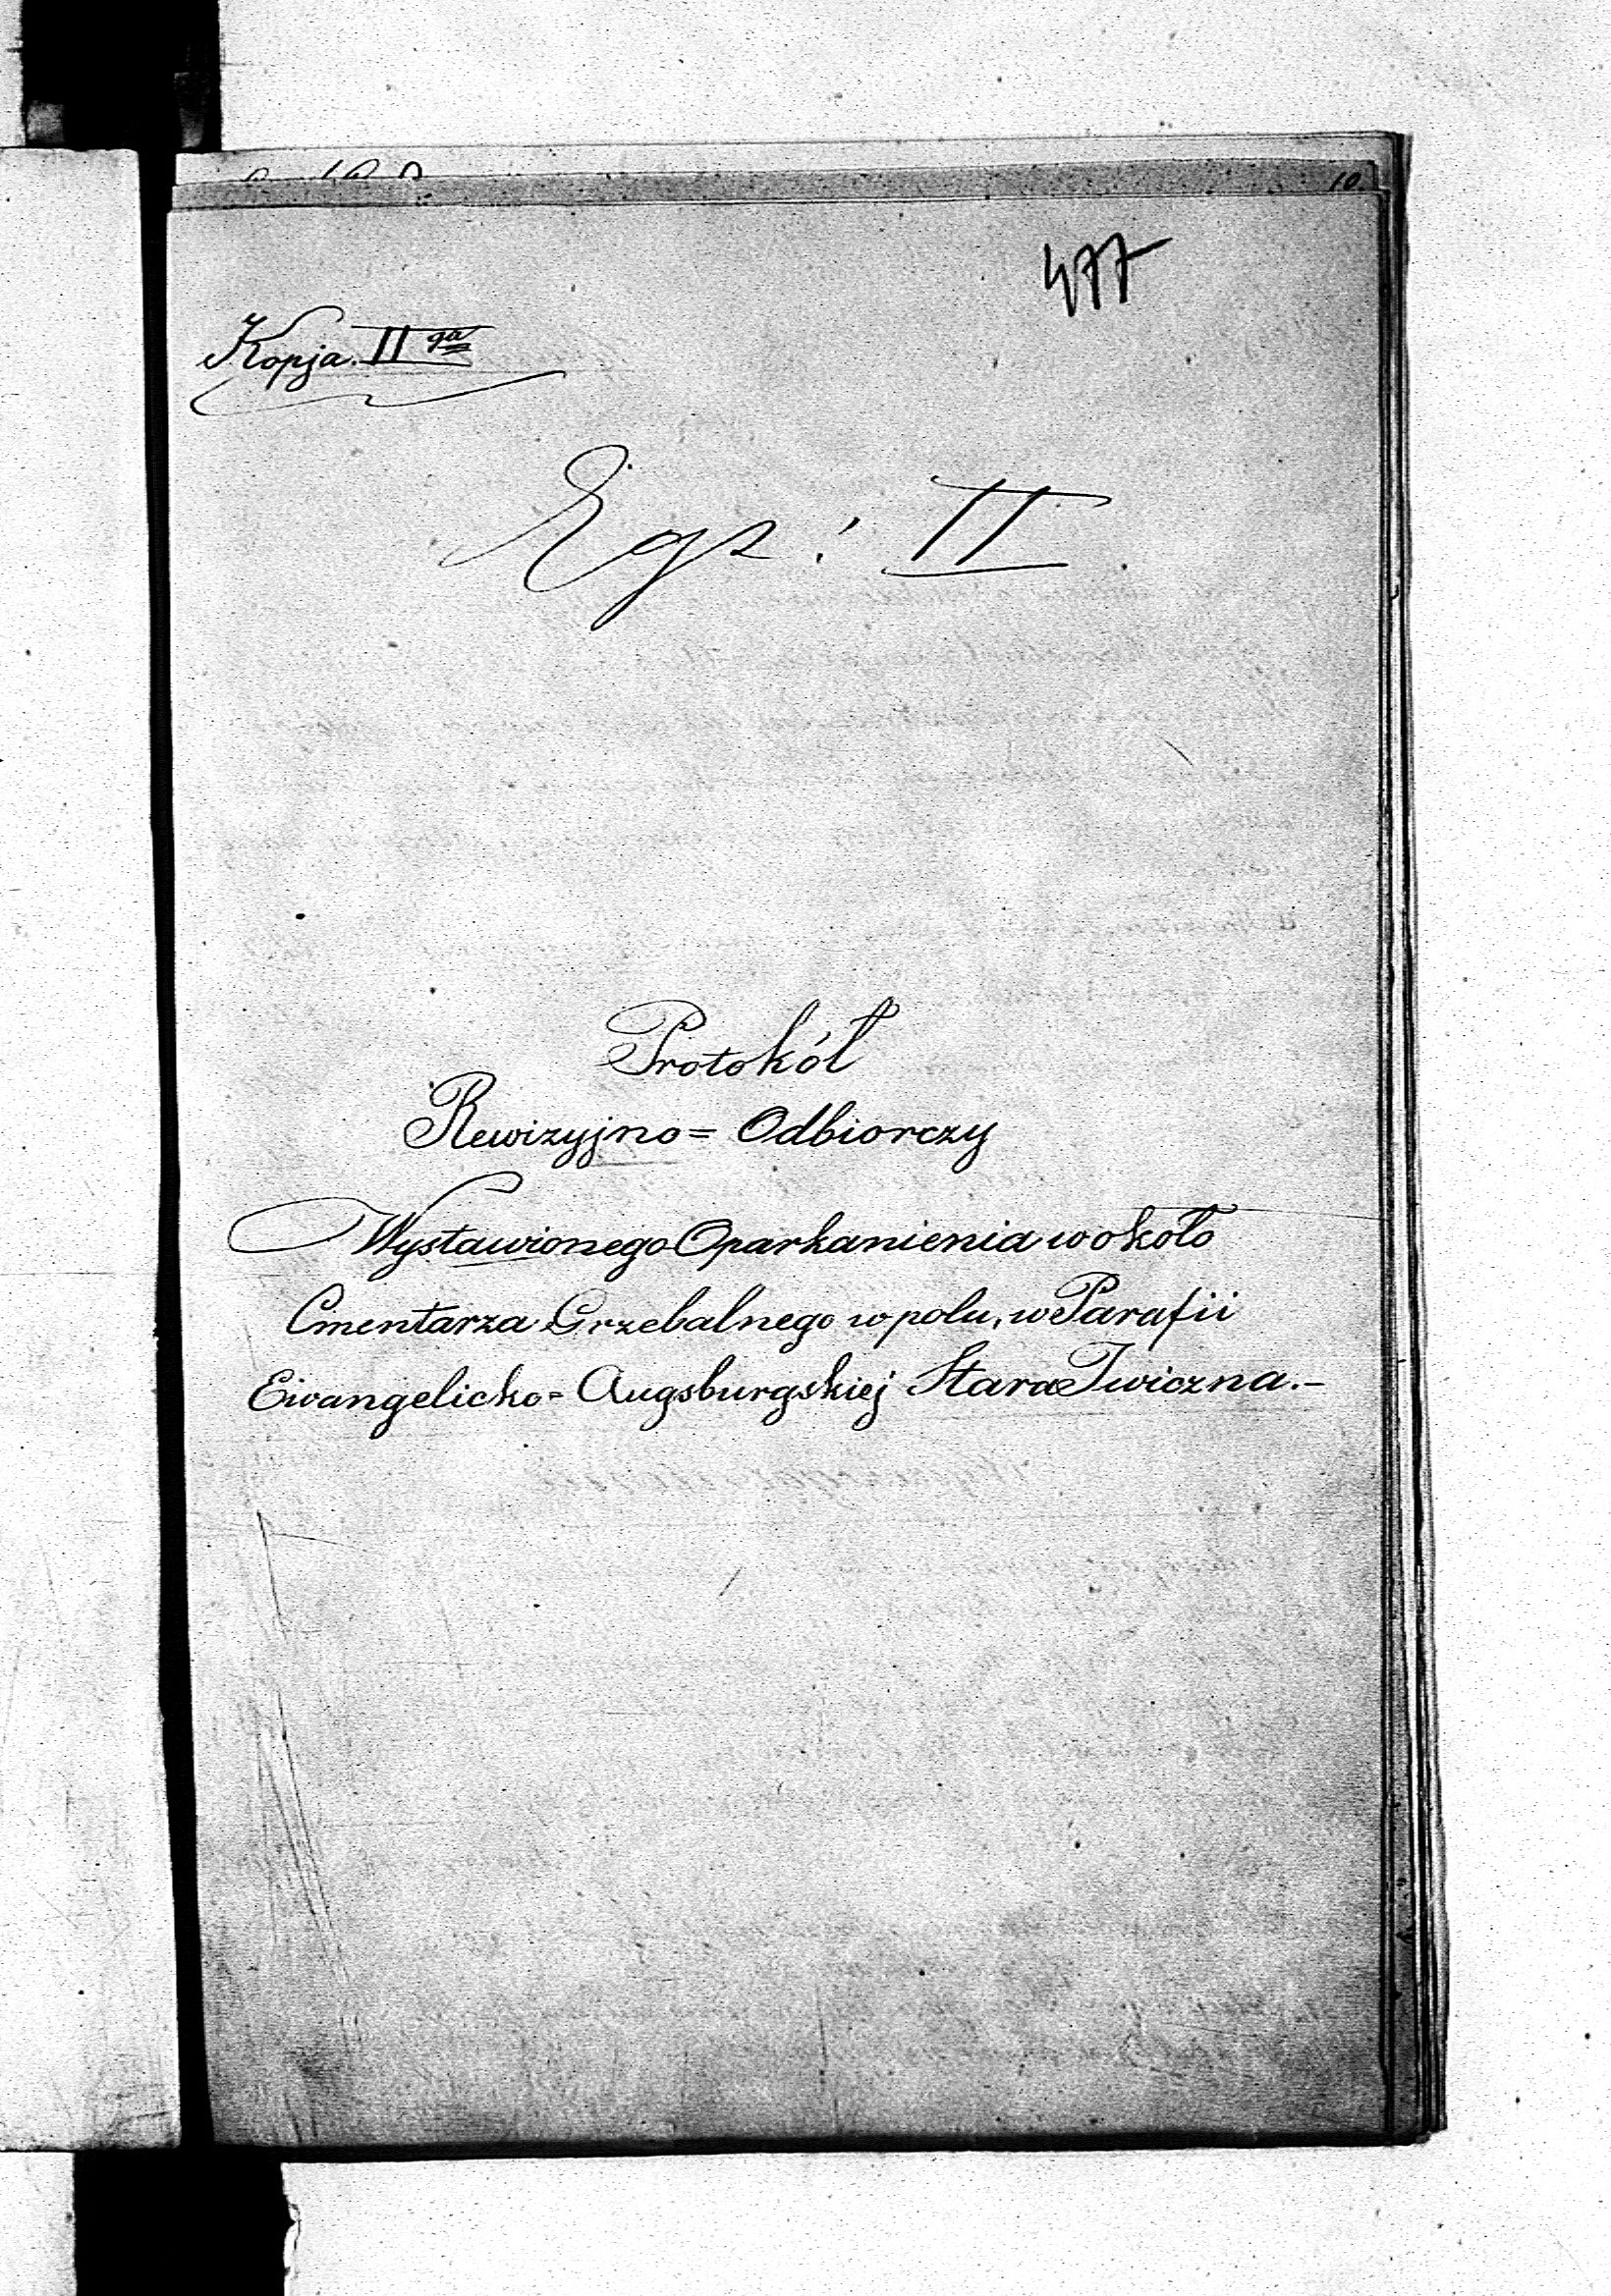 10.
477
Kopja II ga
Egz: II
Protokół
Rewizyjno= Odbiorczy
Wystawionego Oparkanienia wokoło
Cmentarza Grzebalnego w polu, w Parafii
Ewangelicko= Augsburgskiej Stara Iwiczna.-